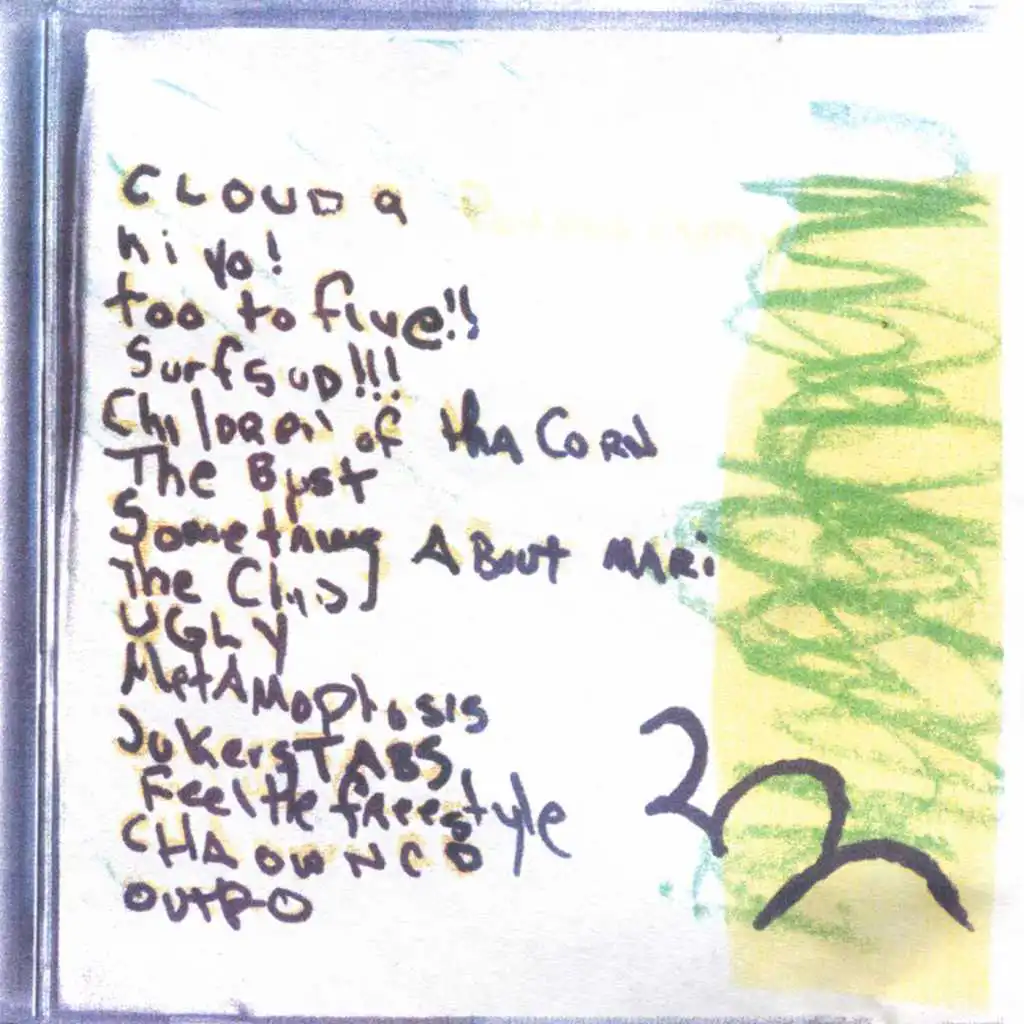 CLOUD 9
hi yo!
too to five!!
Surfsup!!!
Children of tha CoRN
The Bust
Something ABout MARi
The Club
UGLY
MetAMophosis
JokersTABS
Feel the freestyle
CHA
OUTRO